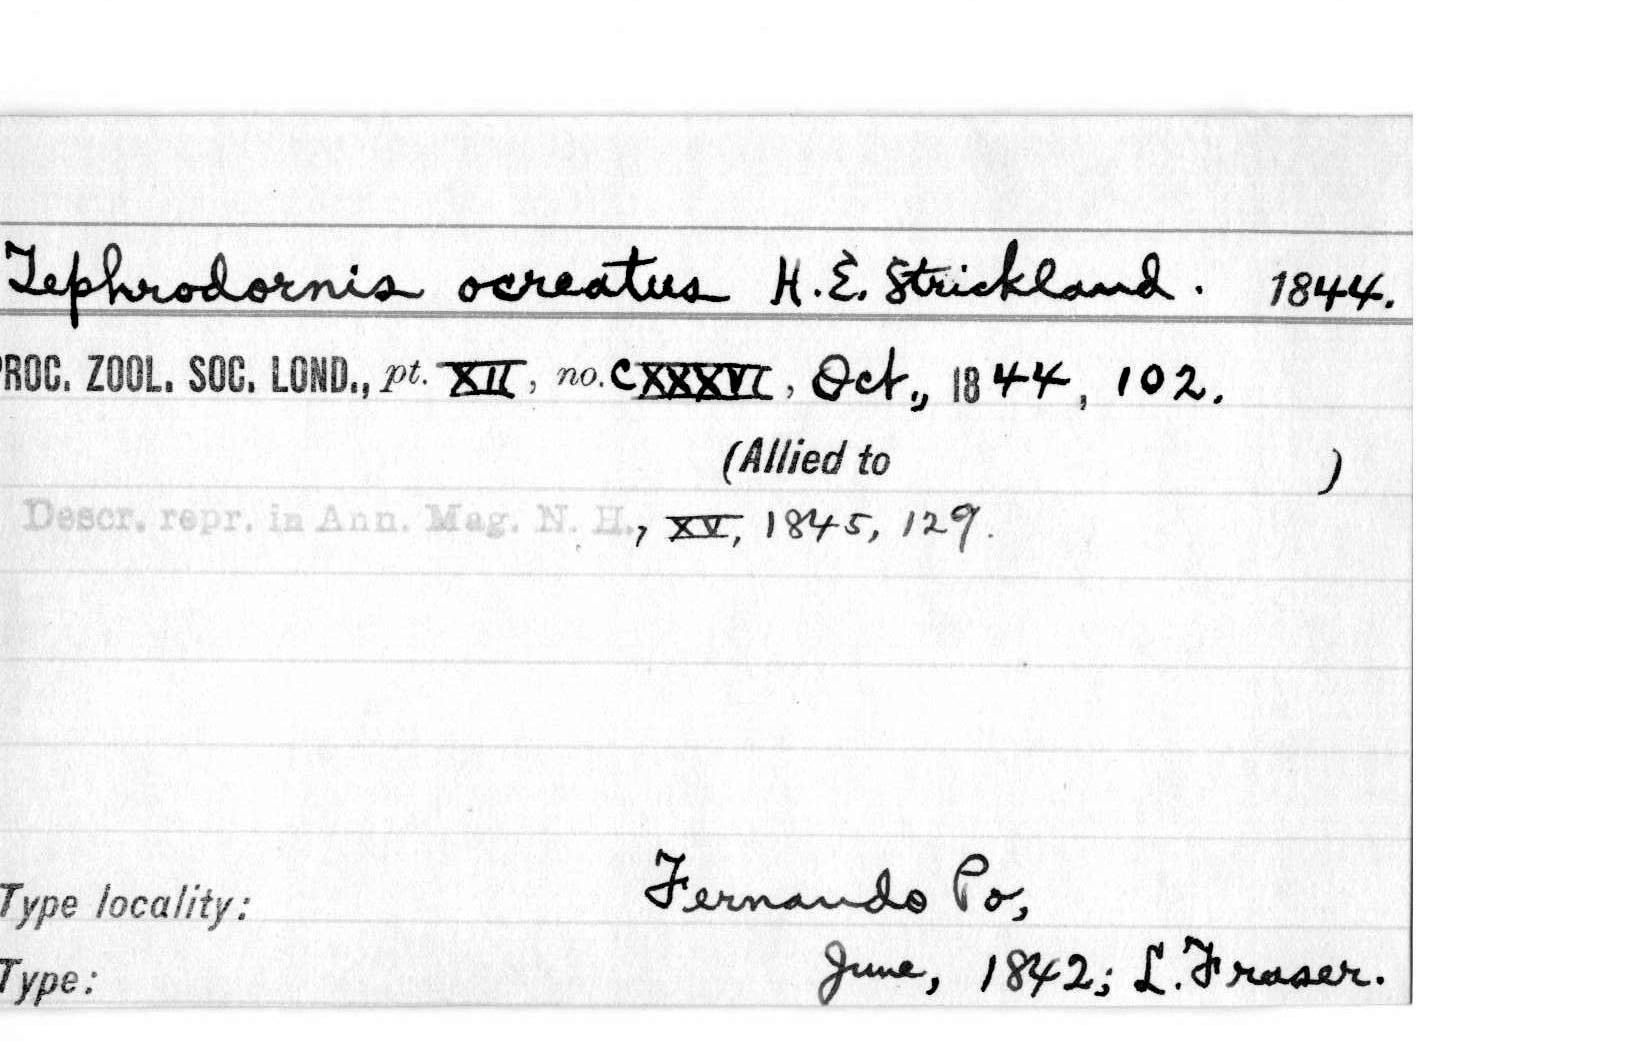 Tephrodornis ocreatus H.E. Strickland. 1844.
PROC. ZOOL. SOC. LOND., pt. XII, no. CXXXVI, Oct., 1844, 102.
(Allied to )
Descr. repr. in Ann. Mag. N. H., XV, 1845, 129.
Type locality: Fernando Po,
Type: June, 1842; L. Fraser.